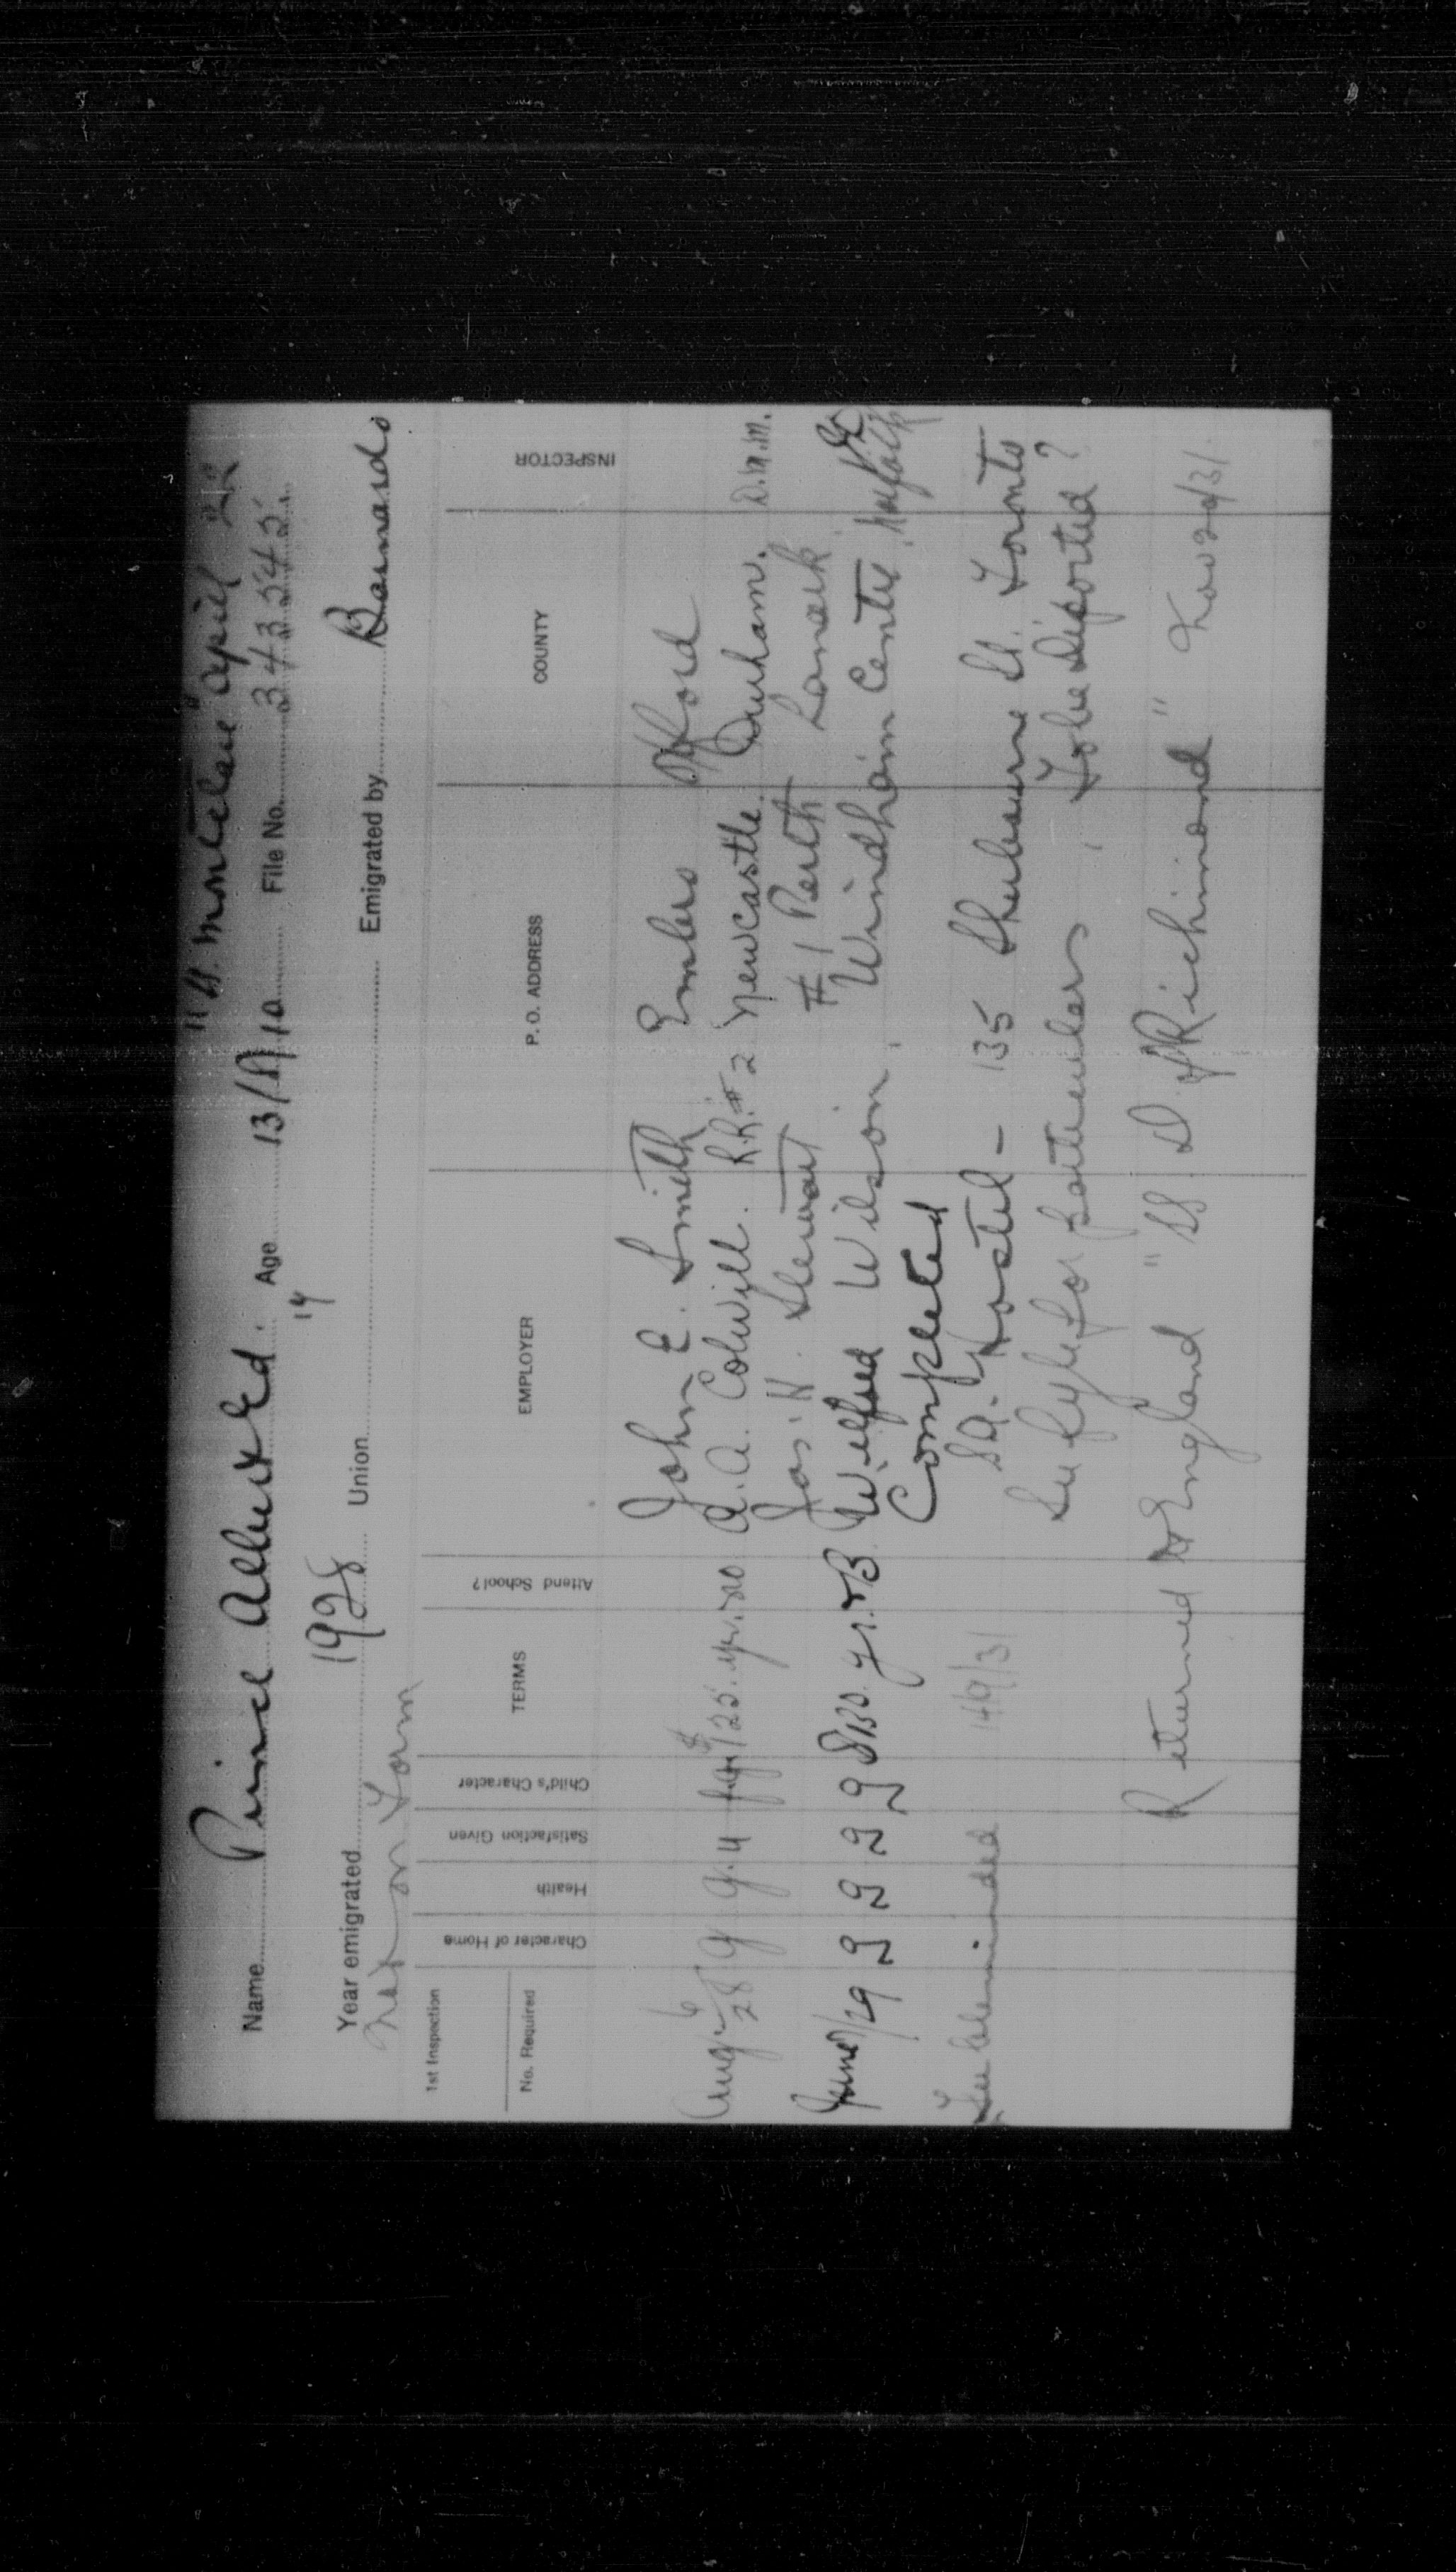 "SS. Montclare" April 2
Name Prince Albert Ed. Age 13/11/10 File No. 343545
14
Year emigrated 1928 Union Emigrated by Barnardo
Not on Form
1st Inspection
No. Required Character of Home Health Satisfaction Given Child's Character TERMS Attend School? EMPLOYER P. O. ADDRESS COUNTY INSPECTOR
John E. Smith Embro Oxford
Aug. 6/28 g g. 4 $125. yr. no A. A. Colwill. R.R. #2 Newcastle. Durham. D.M.M.
Jas. H. Stewart #1 Perth Lanark
June 7/29 g g g g $130. yr. & B. Wilfred Wilson, Windham Centre, Norfolk
Completed
Feebleminded 14/9/31 SA. Hostel - 135 Sherbourne St. Toronto
See fyle for particulars, To be Deported?
Returned to England "SS. D. of Richmond" Nov 20/31.